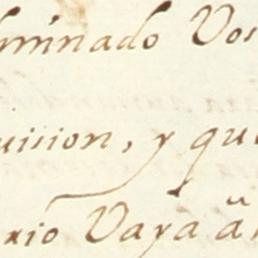 minado Vos
uision, y que
rio Vaya añ